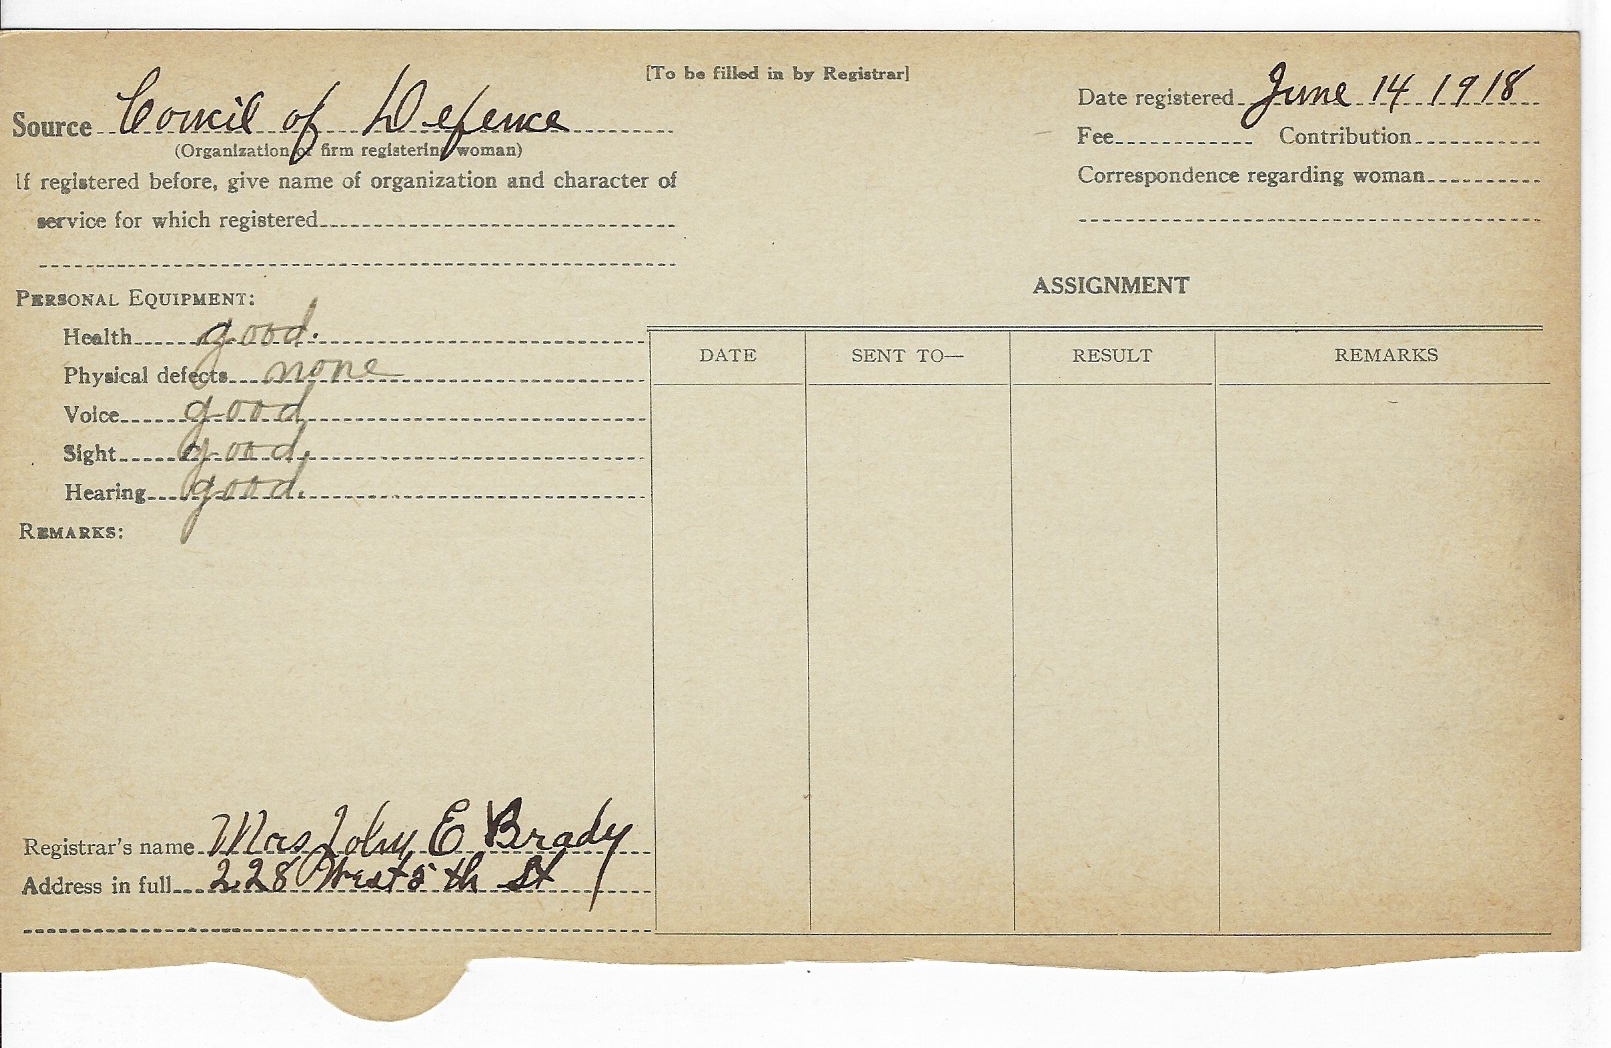 [To be filled in by Registrar]
Source Concil of Defence
(Organization or firm registering woman)
If registered before, give name of organization and character of
service for which registered
Date registered June 14 1918
Fee Contribution
Correspondence regarding woman
PERSONAL EQUIPMENT:
Health good.
Physical defects none
Voice good
Sight good.
Hearing good.
REMARKS:
ASSIGNMENT
DATE SENT TO— RESULT REMARKS
Registrar's name Mrs John E Brady
Address in full 228 West 5th St